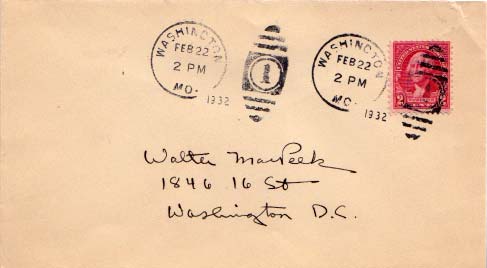 WASHINGTON
FEB 22
2 PM
MO.
1932
1
WASHINGTON
FEB 22
2 PM
MO.
1932
2
Walter
1846 16 St
Washington D.C.